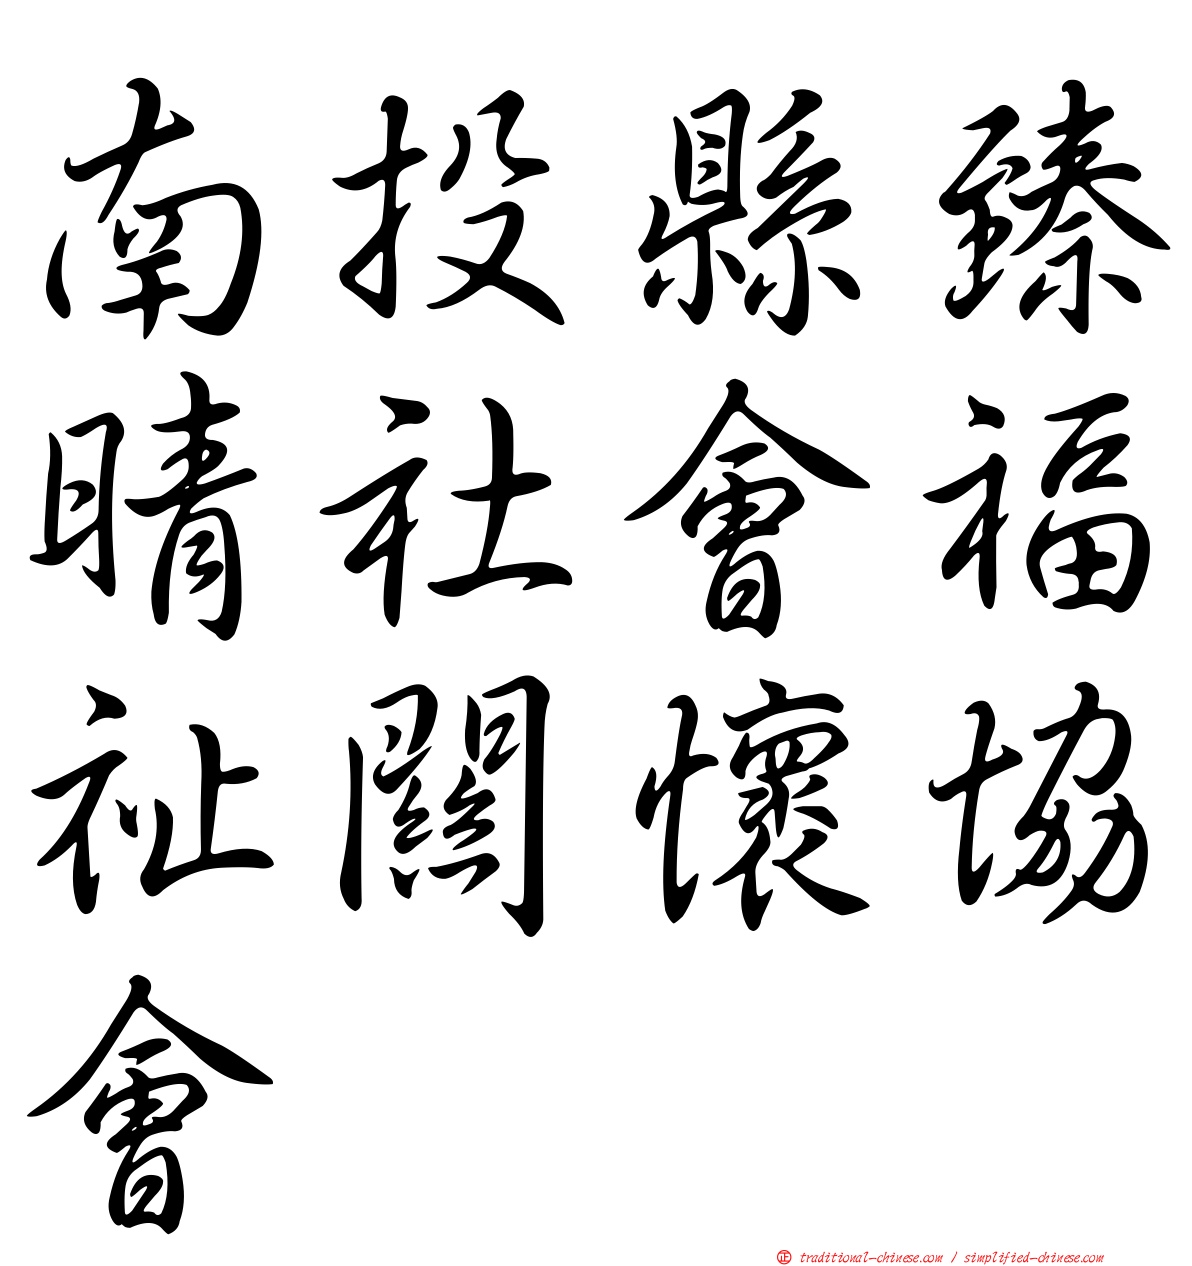 南投縣臻
晴社會福
祉關懷協
會
正 traditional-chinese.com / simplified-chinese.com